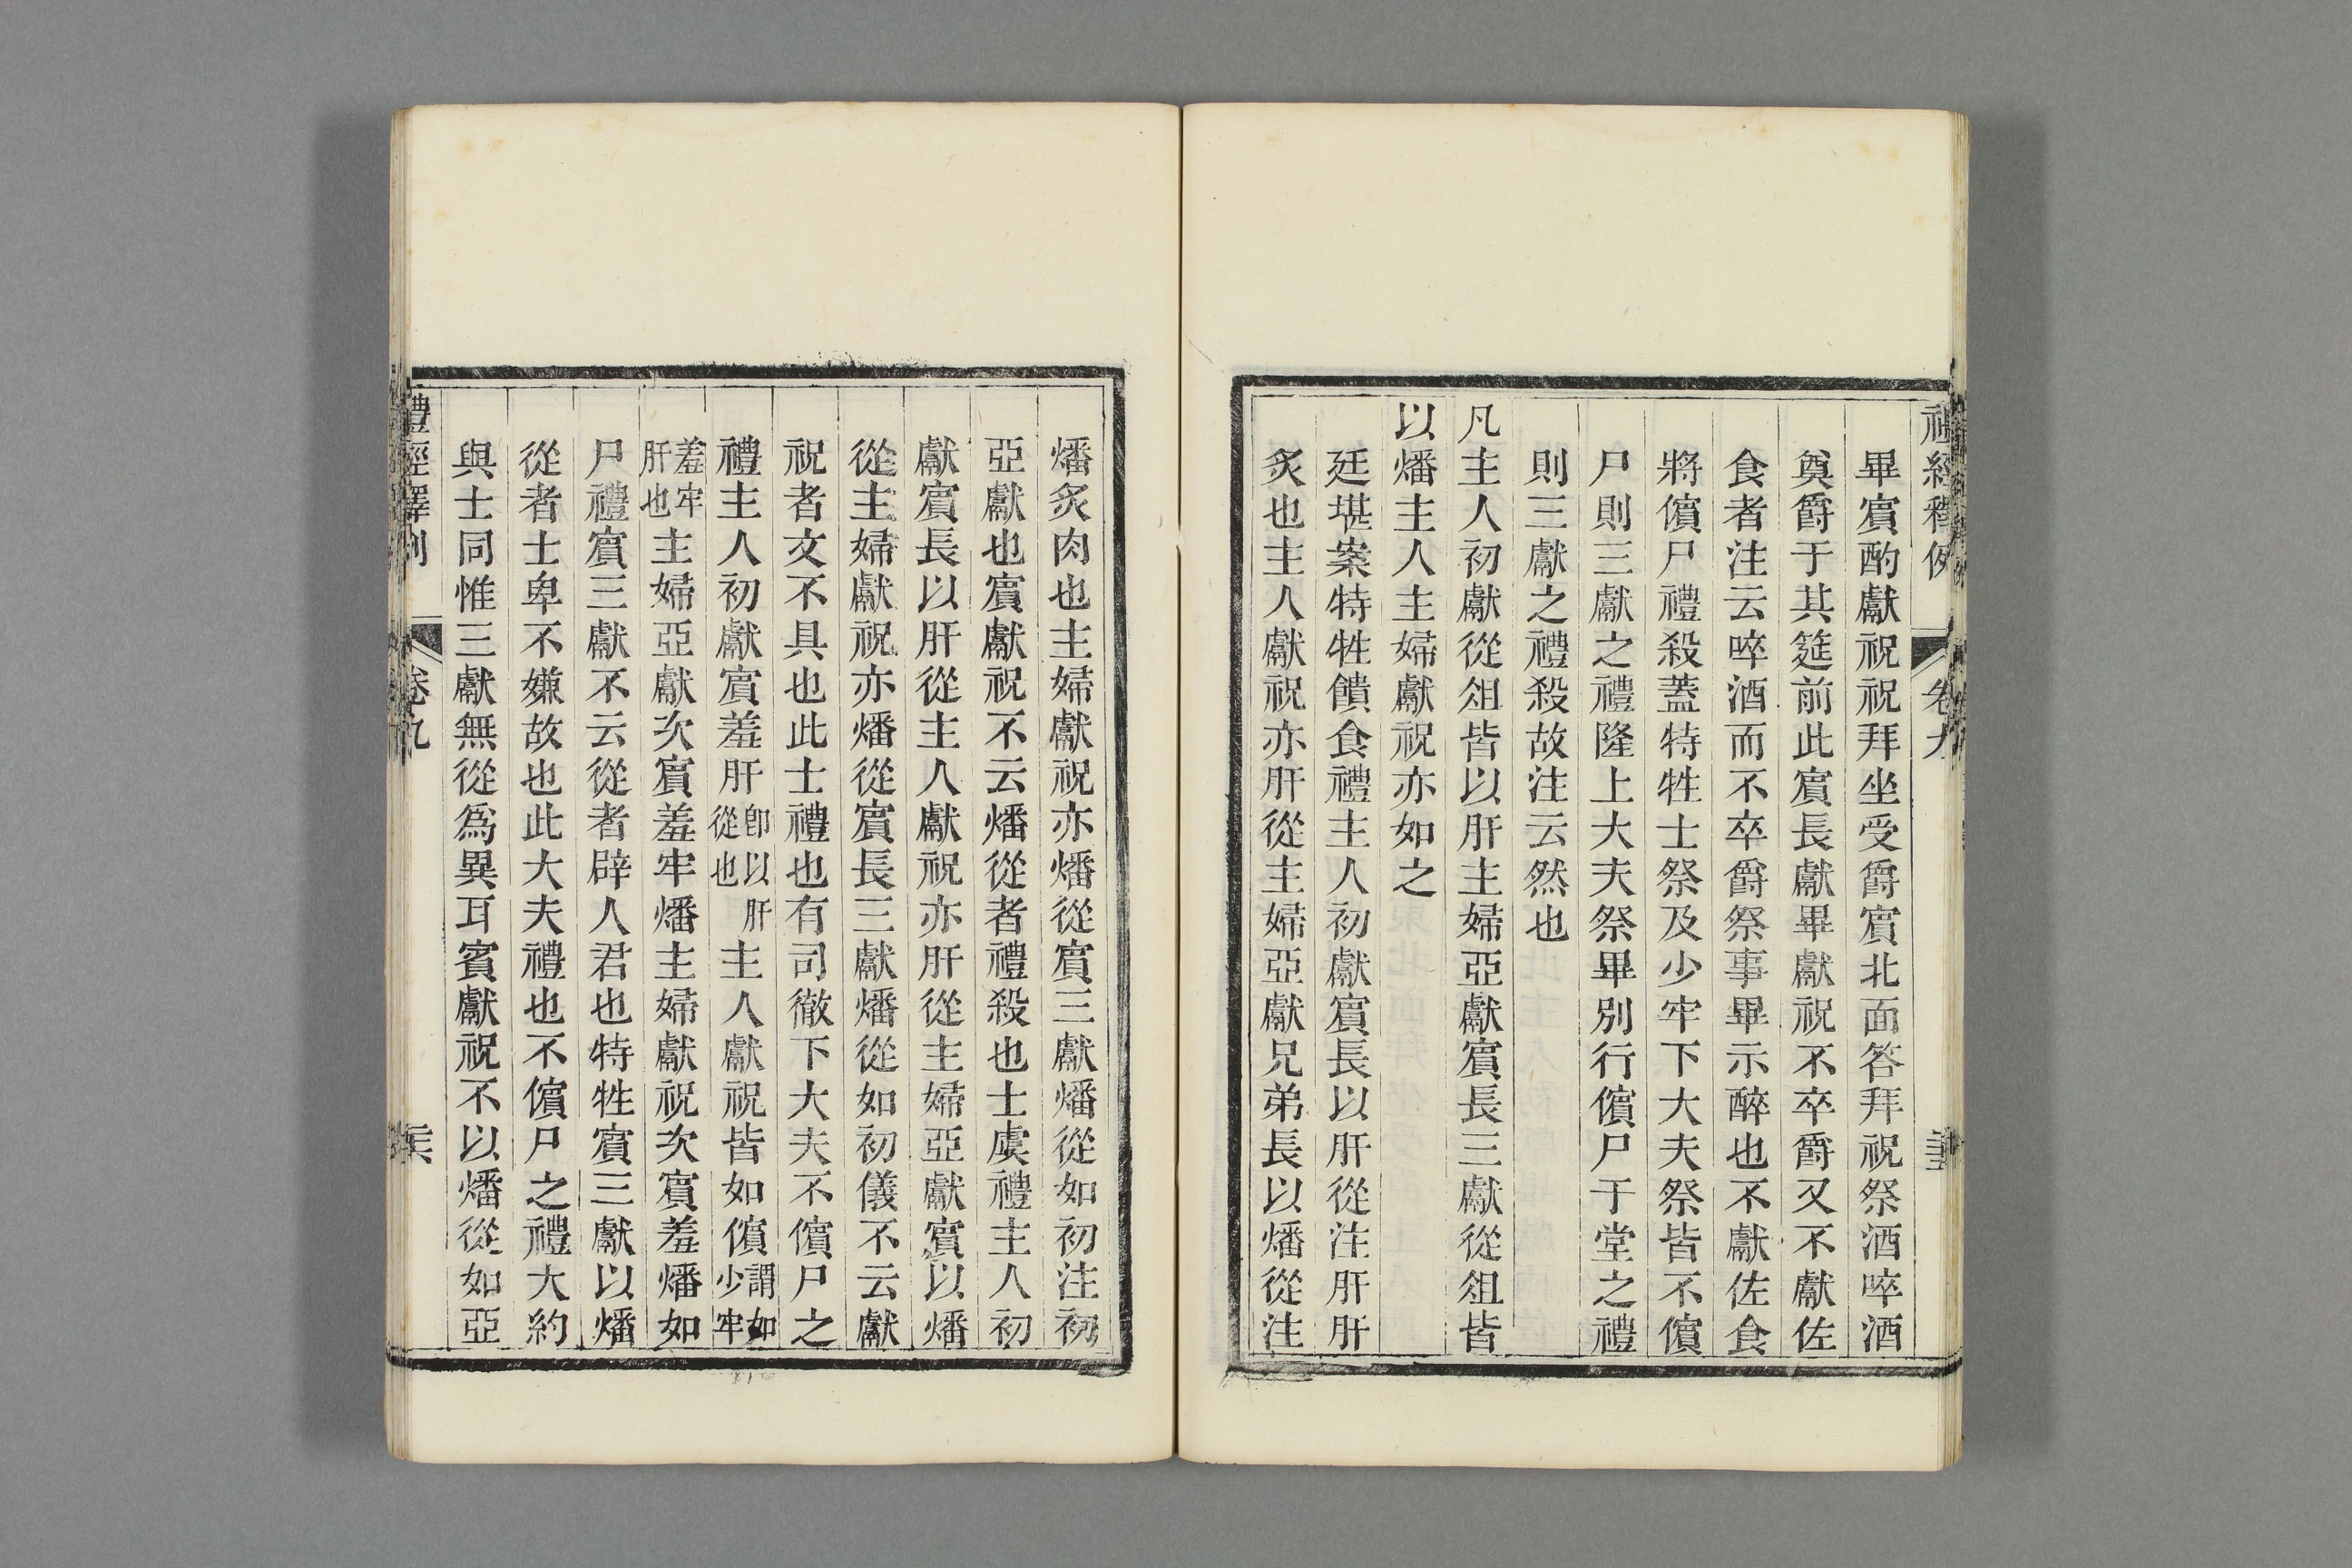 禮經釋例 卷九
畢賔酌獻祝祝拜坐受爵賔北面答拜祝祭酒啐酒
奠爵于其筵前此賔長獻畢獻祝不卒爵又不獻佐
食者注云啐酒而不卒爵祭事畢示醉也不獻佐食
將儐尸禮殺蓋特牲士祭及少牢下大夫祭皆不儐
尸則三獻之禮隆上大夫祭畢別行儐尸于堂之禮
則三獻之禮殺故注云然也
凡主人初獻從俎皆以肝主婦亞獻賔長三獻從俎皆
以燔主人主婦獻祝亦如之
廷堪案特牲饋食禮主人初獻賔長以肝從注肝肝
炙也主人獻祝亦肝從主婦亞獻兄弟長以燔從注
燔炙肉也主婦獻祝亦燔從賔三獻燔從如初注初
亞獻也賔獻祝不云燔從者禮殺也士虞禮主人初
獻賔長以肝從主人獻祝亦肝從主婦亞獻賔以燔
從主婦獻祝亦燔從賔長三獻燔從如初儀不云獻
祝者文不具也此士禮也有司徹下大夫不儐尸之
禮主人初獻賔羞肝卽以肝從也主人獻祝皆如儐謂如少牢
羞牢肝也主婦亞獻次賔羞牢燔主婦獻祝次賔羞燔如
尸禮賔三獻不云從者辟人君也特牲賔三獻以燔
從者士卑不嫌故也此大夫禮也不儐尸之禮大約
與士同惟三獻無從爲異耳賓獻祝不以燔從如亞
禮經釋例 卷九